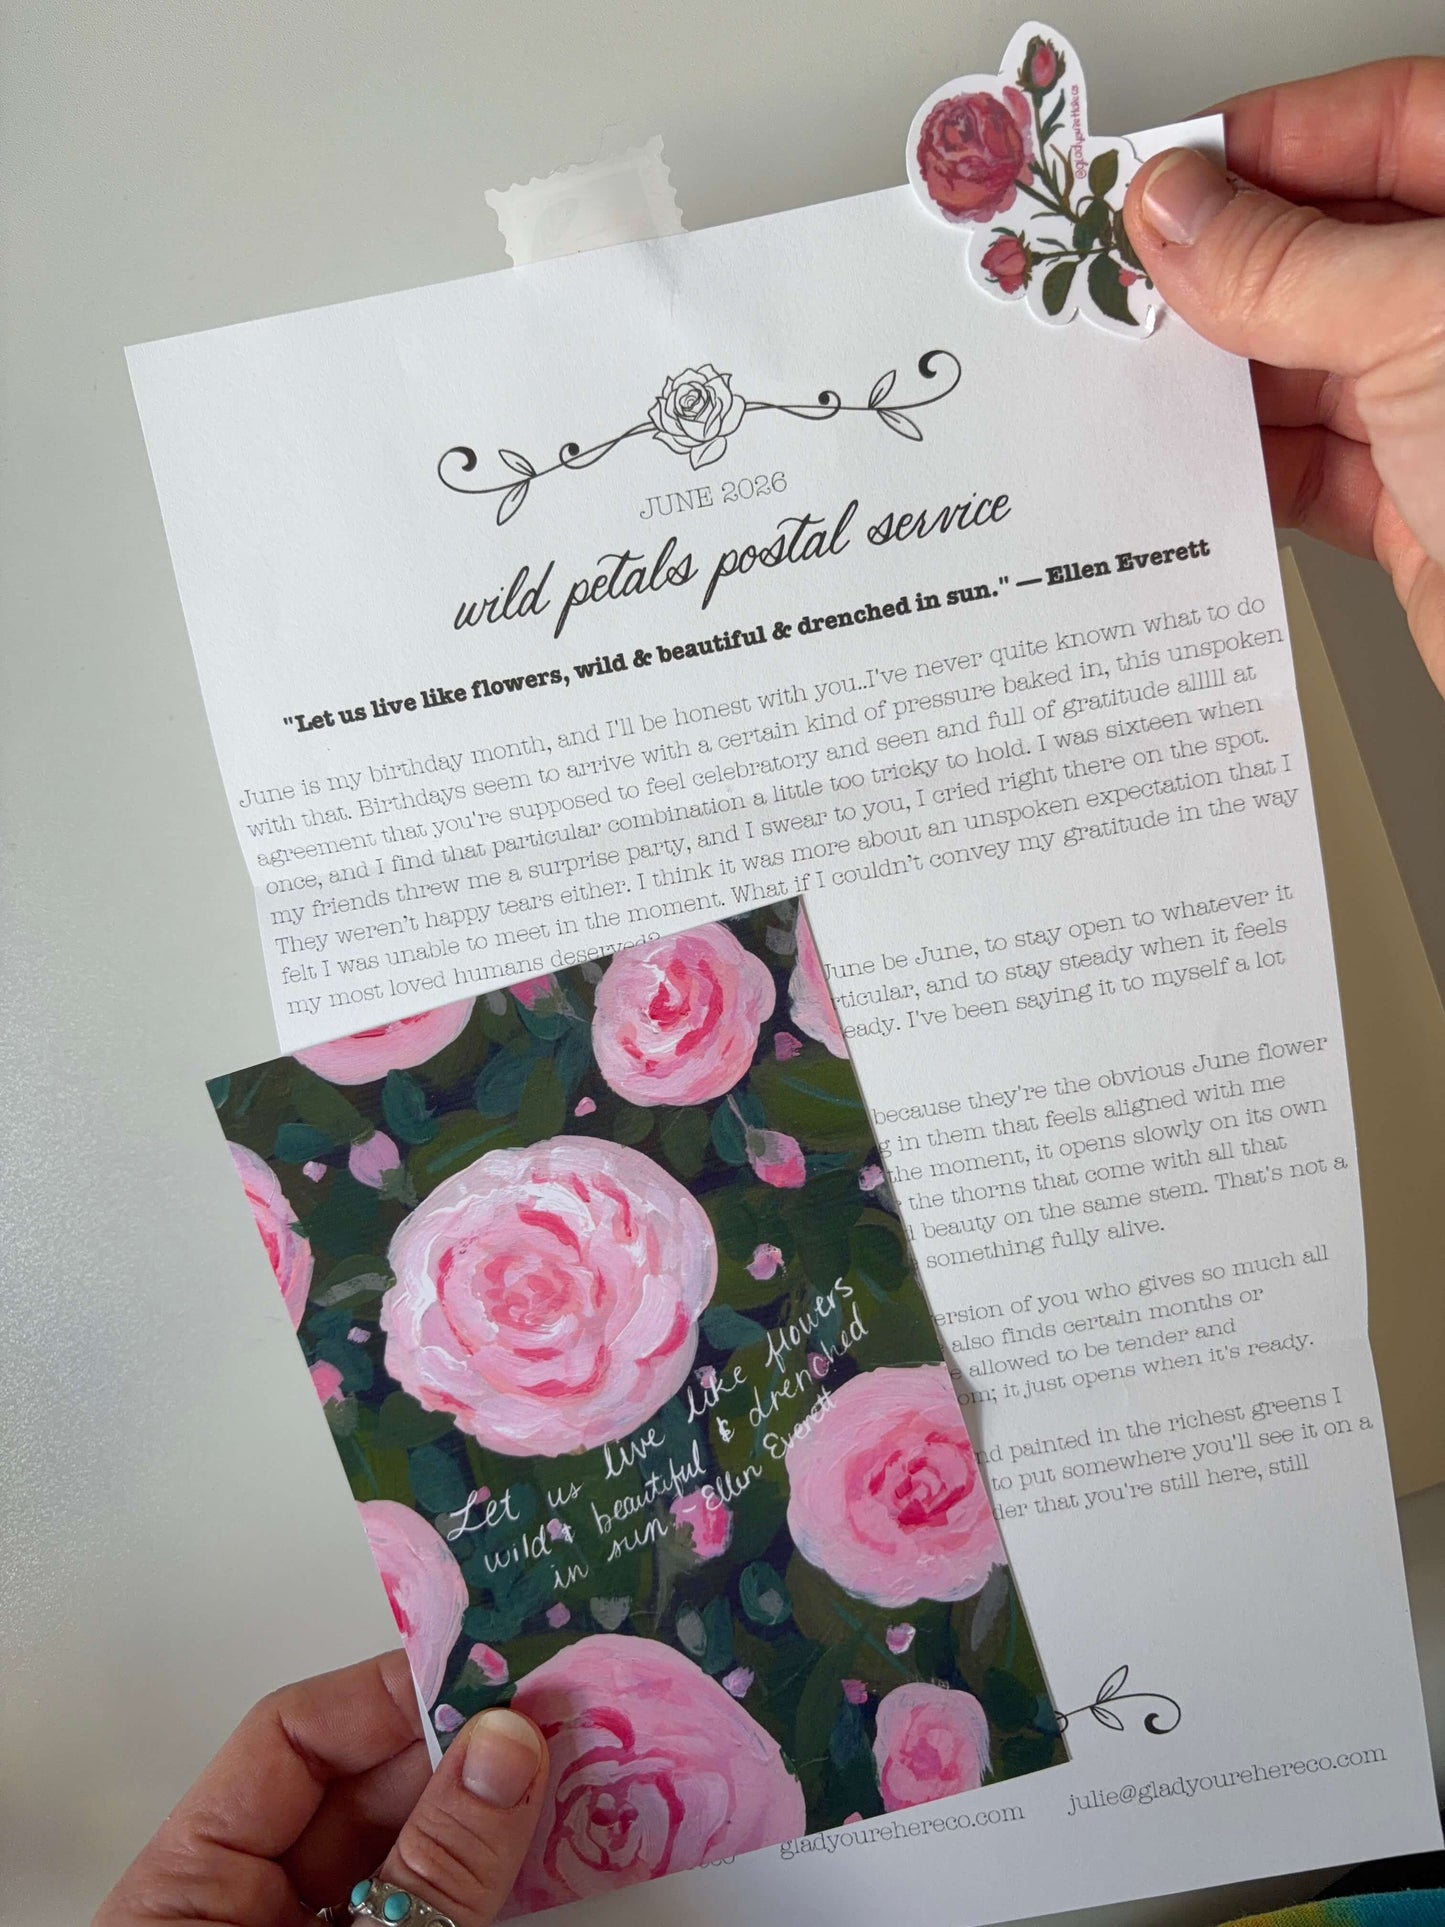 @gladyourehereco
JUNE 2026
wild petals postal service
"Let us live like flowers, wild & beautiful & drenched in sun." — Ellen Everett
June is my birthday month, and I'll be honest with you..I've never quite known what to do
with that. Birthdays seem to arrive with a certain kind of pressure baked in, this unspoken
agreement that you're supposed to feel celebratory and seen and full of gratitude alllll at
once, and I find that particular combination a little too tricky to hold. I was sixteen when
my friends threw me a surprise party, and I swear to you, I cried right there on the spot.
They weren't happy tears either. I think it was more about an unspoken expectation that I
felt I was unable to meet in the moment. What if I couldn't convey my gratitude in the way
my most loved humans deserved?
June be June, to stay open to whatever it
and to stay steady when it feels
I've been saying it to myself a lot
because they're the obvious June flower
in them that feels aligned with me
the moment, it opens slowly on its own
the thorns that come with all that
beauty on the same stem. That's not a
something fully alive.
of you who gives so much all
also finds certain months or
allowed to be tender and
it just opens when it's ready.
painted in the richest greens I
to put somewhere you'll see it on a
that you're still here, still
Let us live like flowers
wild & beautiful & drenched
in sun. - Ellen Everett
gladyourehereco.com
julie@gladyourehereco.com